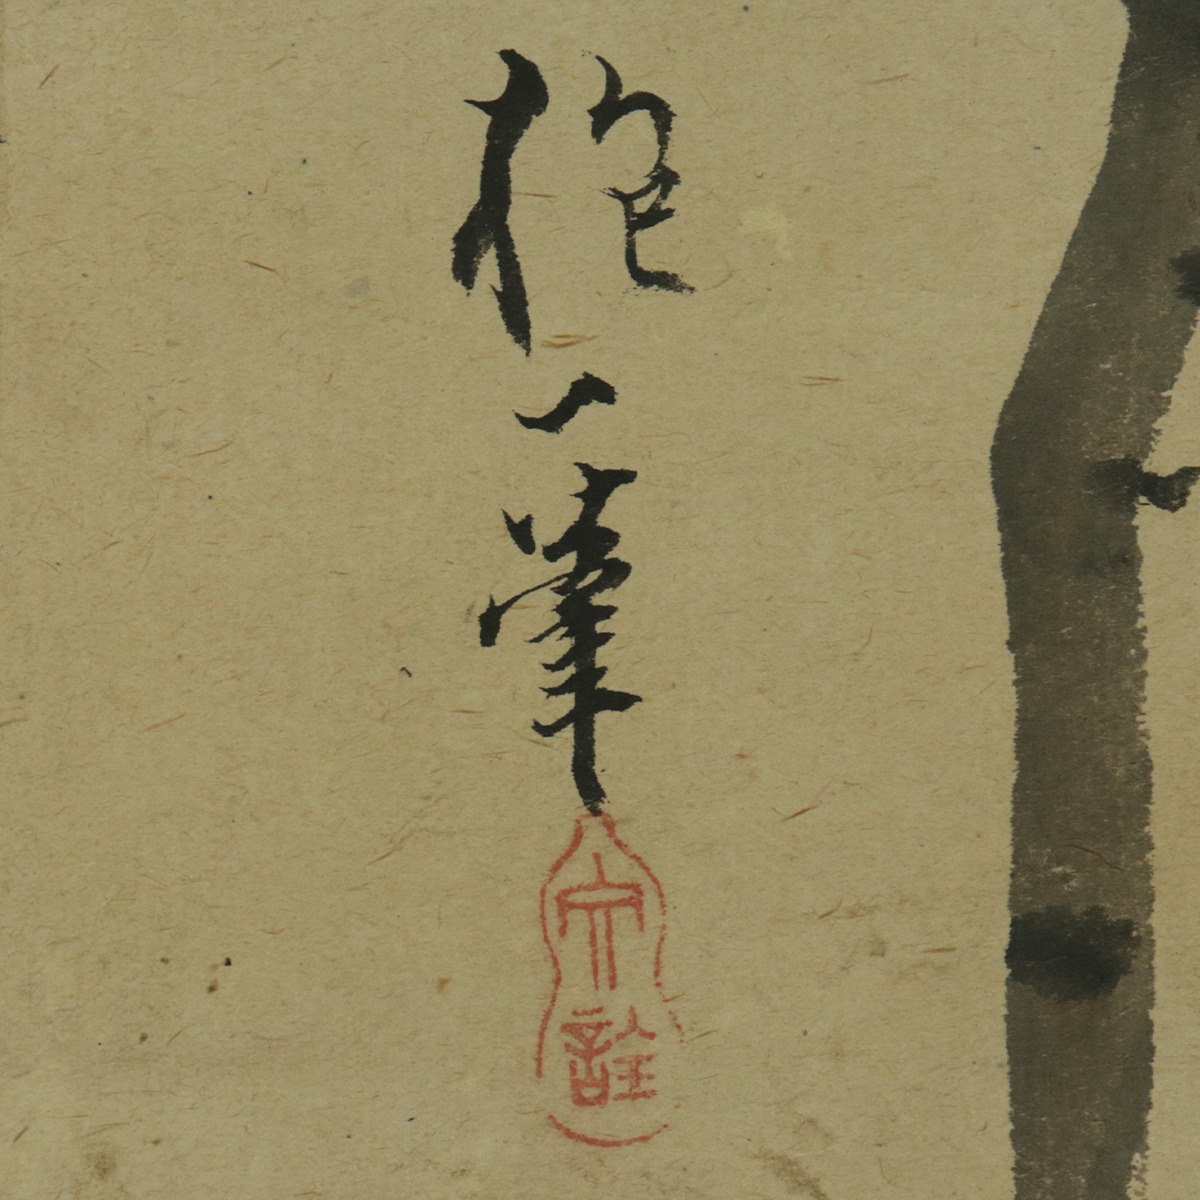 抱一筆
文詮